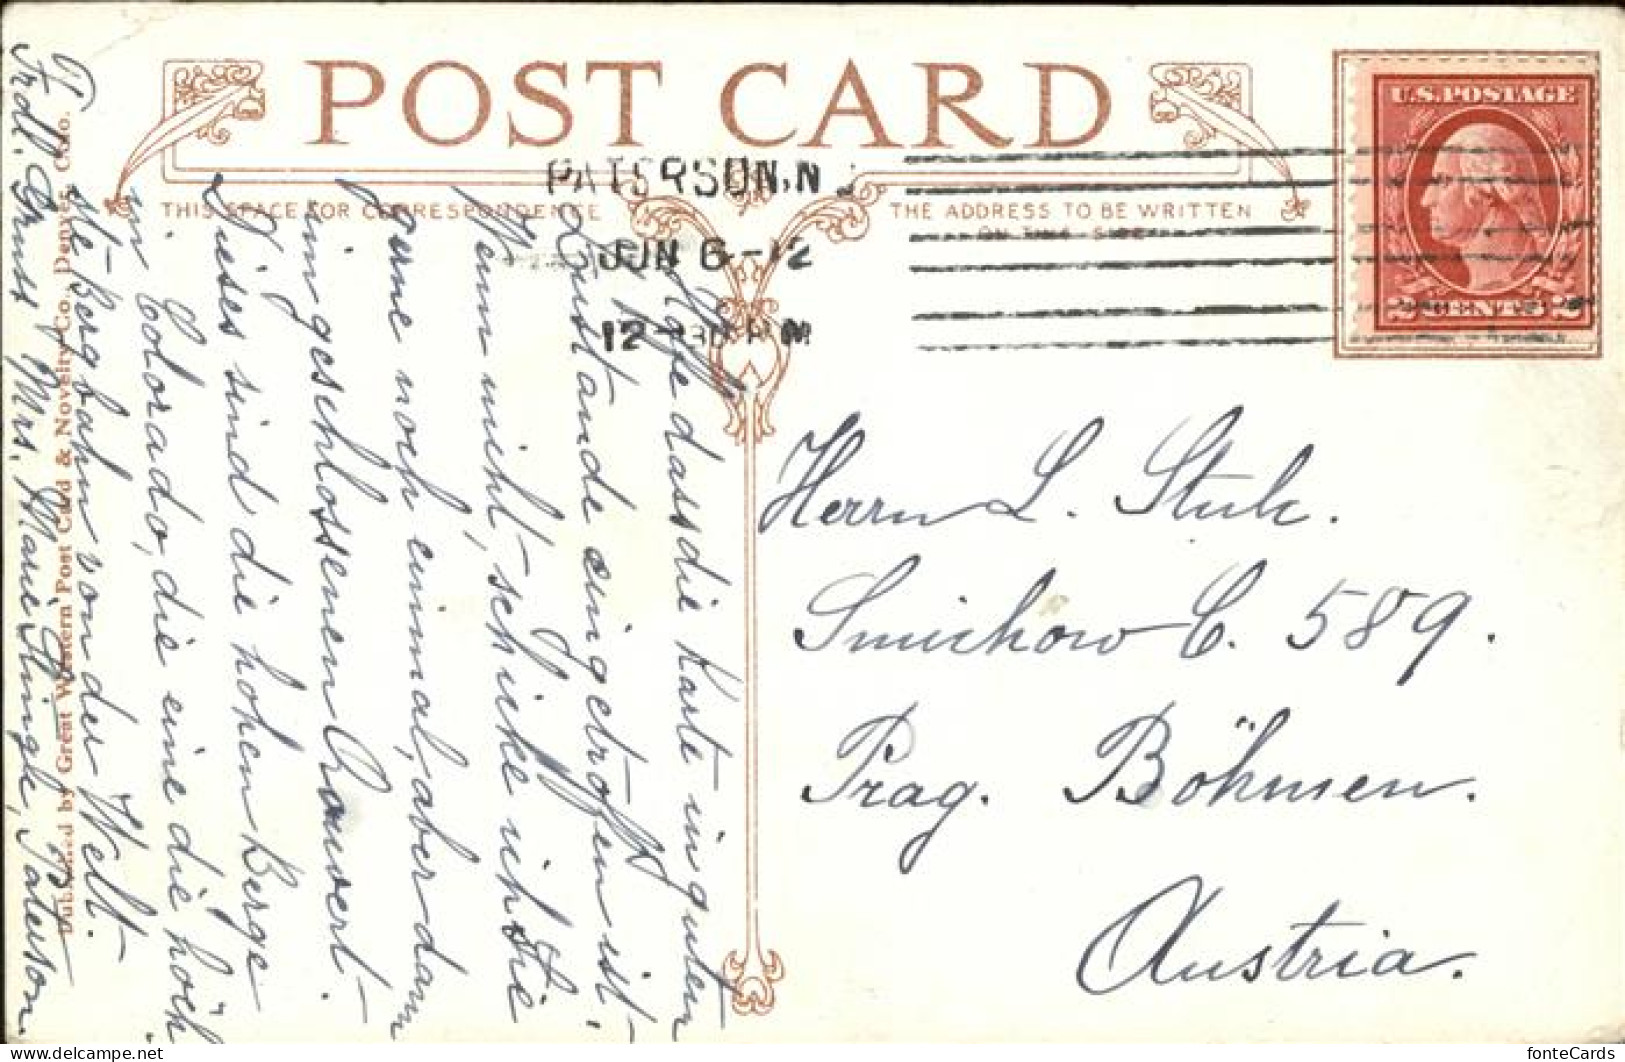 POST CARD
THIS SPACE FOR CORRESPONDENCE
THE ADDRESS TO BE WRITTEN
ON THIS SIDE
PATERSON, N
JUN 6 - 12
12 30 P M
U.S. POSTAGE
2 CENTS 2
Hoffe dass die Karte in guten
Zustande eingetroffen ist,
Wenn nicht, schicke ich Sie
gerne noch einmal, aber dann
im geschlossenen Couvert.
Dieses sind die hohen Berge
in Colorado, die eine die höch
ste Bergbahn von der Welt.
Frdl. Gruss Mrs. Marie Klinge, Paterson.
Published by Great Western Post Card & Novelty Co., Denver, Colo.
Herrn L. Stulc.
Smichow C. 589.
Prag. Böhmen.
Austria.
fonteCards
delcampe.net